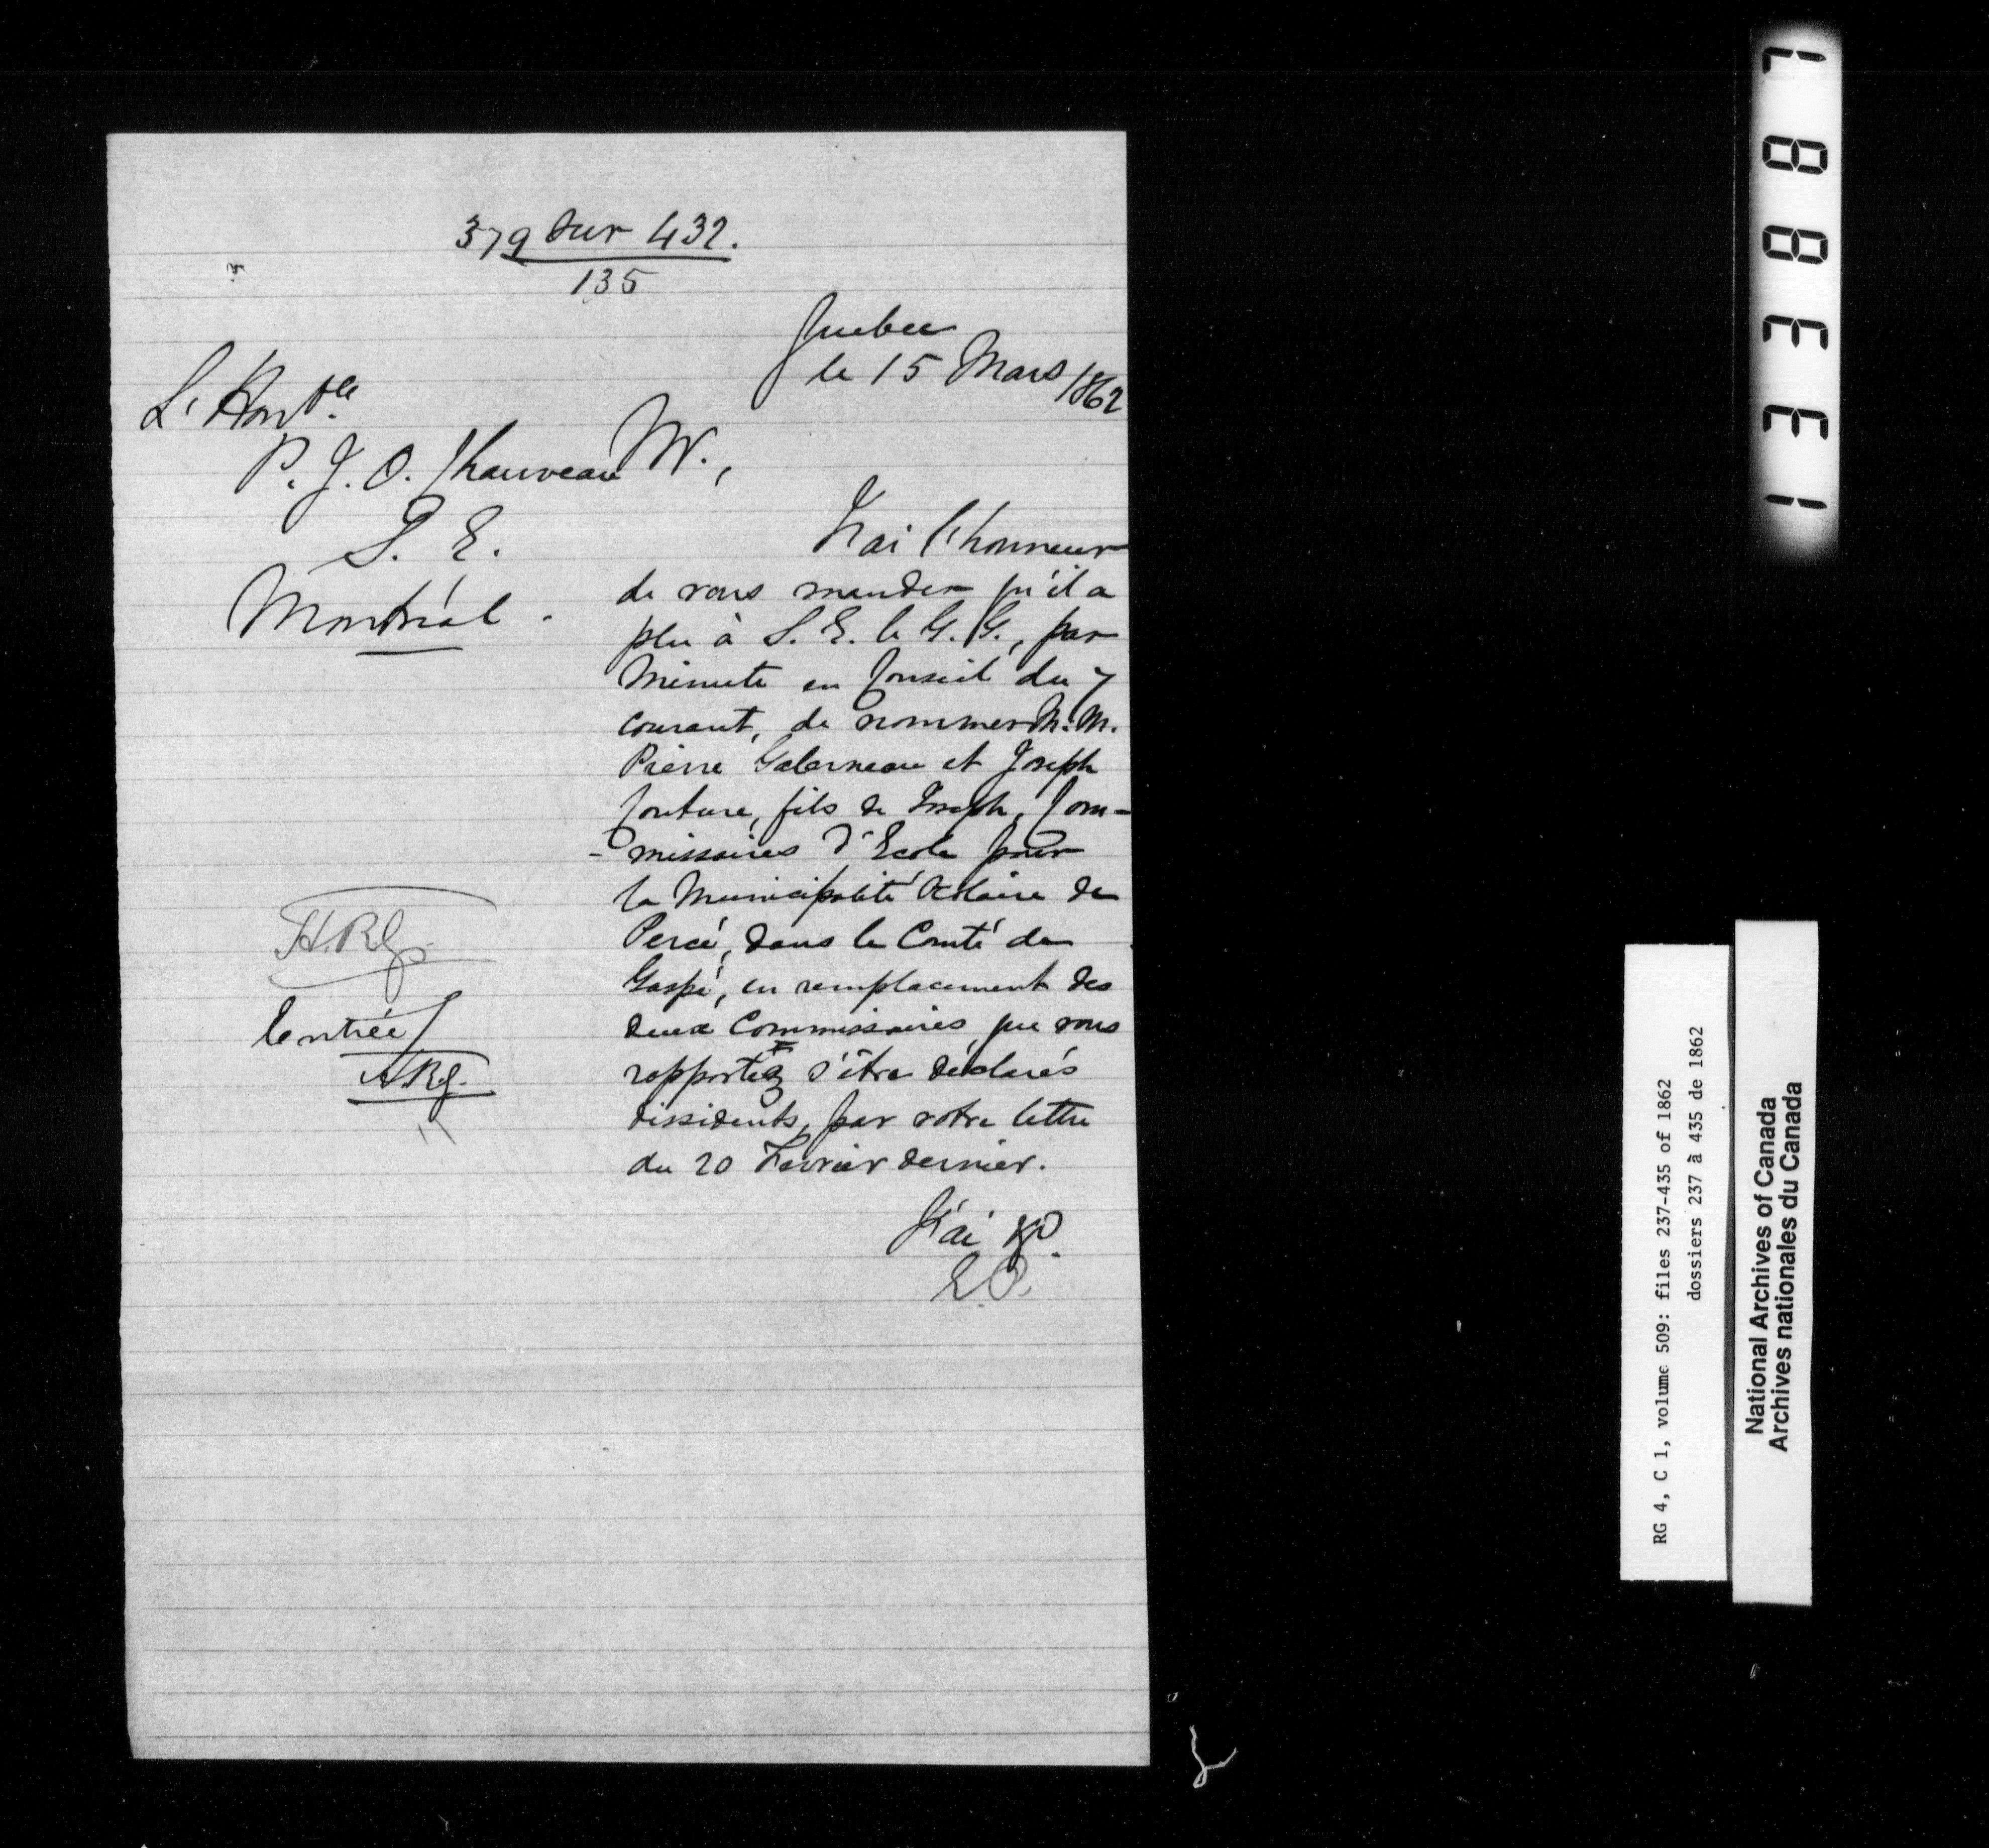 379 sur 432.
135
Quebec
le 15 Mars 1862
L'Honble.
P. J. O. Chauveau
Mr.,
S. E.
Montréal.
J'ai l'honneur
de vous mander qu'il a
plu à S. E. le G. G., par
Minute en Conseil du 7
courant, de nommer M.M.
Pierre Galerneau et Joseph
Couture, fils de Joseph, Com-
-missaires d'Ecole pour
la Municipalité Scolaire de
Percé, dans le Comté de
Gaspé, en remplacement des
deux Commissaires, que vous
rapportez s'être déclarés
dissidents, par votre lettre
du 20 Fevrier dernier.
J'ai &c.
E.P.
entrée
178331
RG 4, C 1, volume 509: files 237-435 of 1862
dossiers 237 à 435 de 1862
National Archives of Canada
Archives nationales du Canada